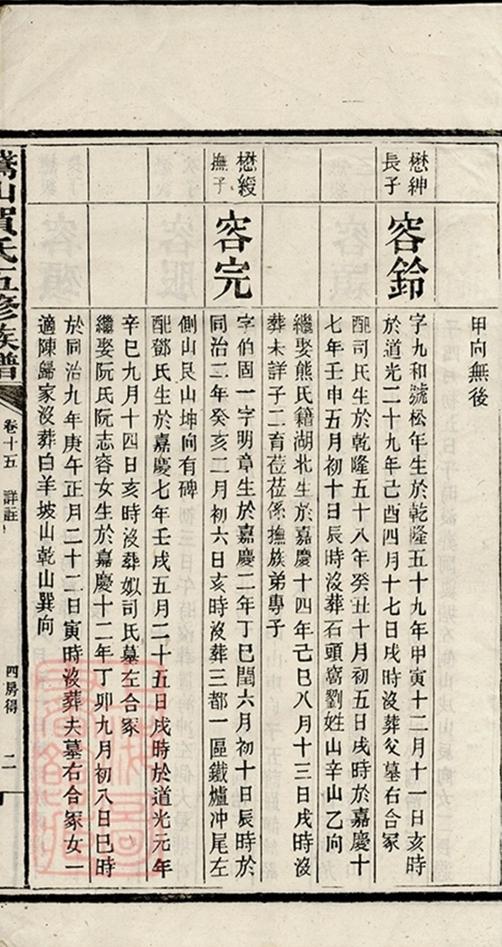 甲向無後
懋紳
長子
容鈴
字九和號松年生於乾隆五十九年甲寅十二月十一日亥時
於道光二十九年己酉四月十七日戌時沒葬父墓右合冢
配司氏生於乾隆五十八年癸丑十月初五日戌時於嘉慶十
七年壬申五月初十日辰時沒葬石頭窩劉姓山辛山乙向
繼娶熊氏籍湖北生於嘉慶十四年己巳八月十三日戌時沒
葬未詳子二育莅莅係撫族弟專子
懋綬
撫子
容完
字伯固一字明章生於嘉慶二年丁巳閏六月初十日辰時於
同治二年癸亥二月初六日亥時沒葬三都一區鐵爐冲尾左
側山艮山坤向有碑
配鄧氏生於嘉慶七年壬戌五月二十五日戌時於道光元年
辛巳九月十四日亥時沒葬姒司氏墓左合冢
繼娶阮氏阮志容女生於嘉慶十二年丁卯九月初八日巳時
於同治九年庚午正月二十二日寅時沒葬夫墓右合冢女一
適陳歸家沒葬白羊坡山乾山巽向
山賀氏五修族譜
卷十五
詳註
四房得
二